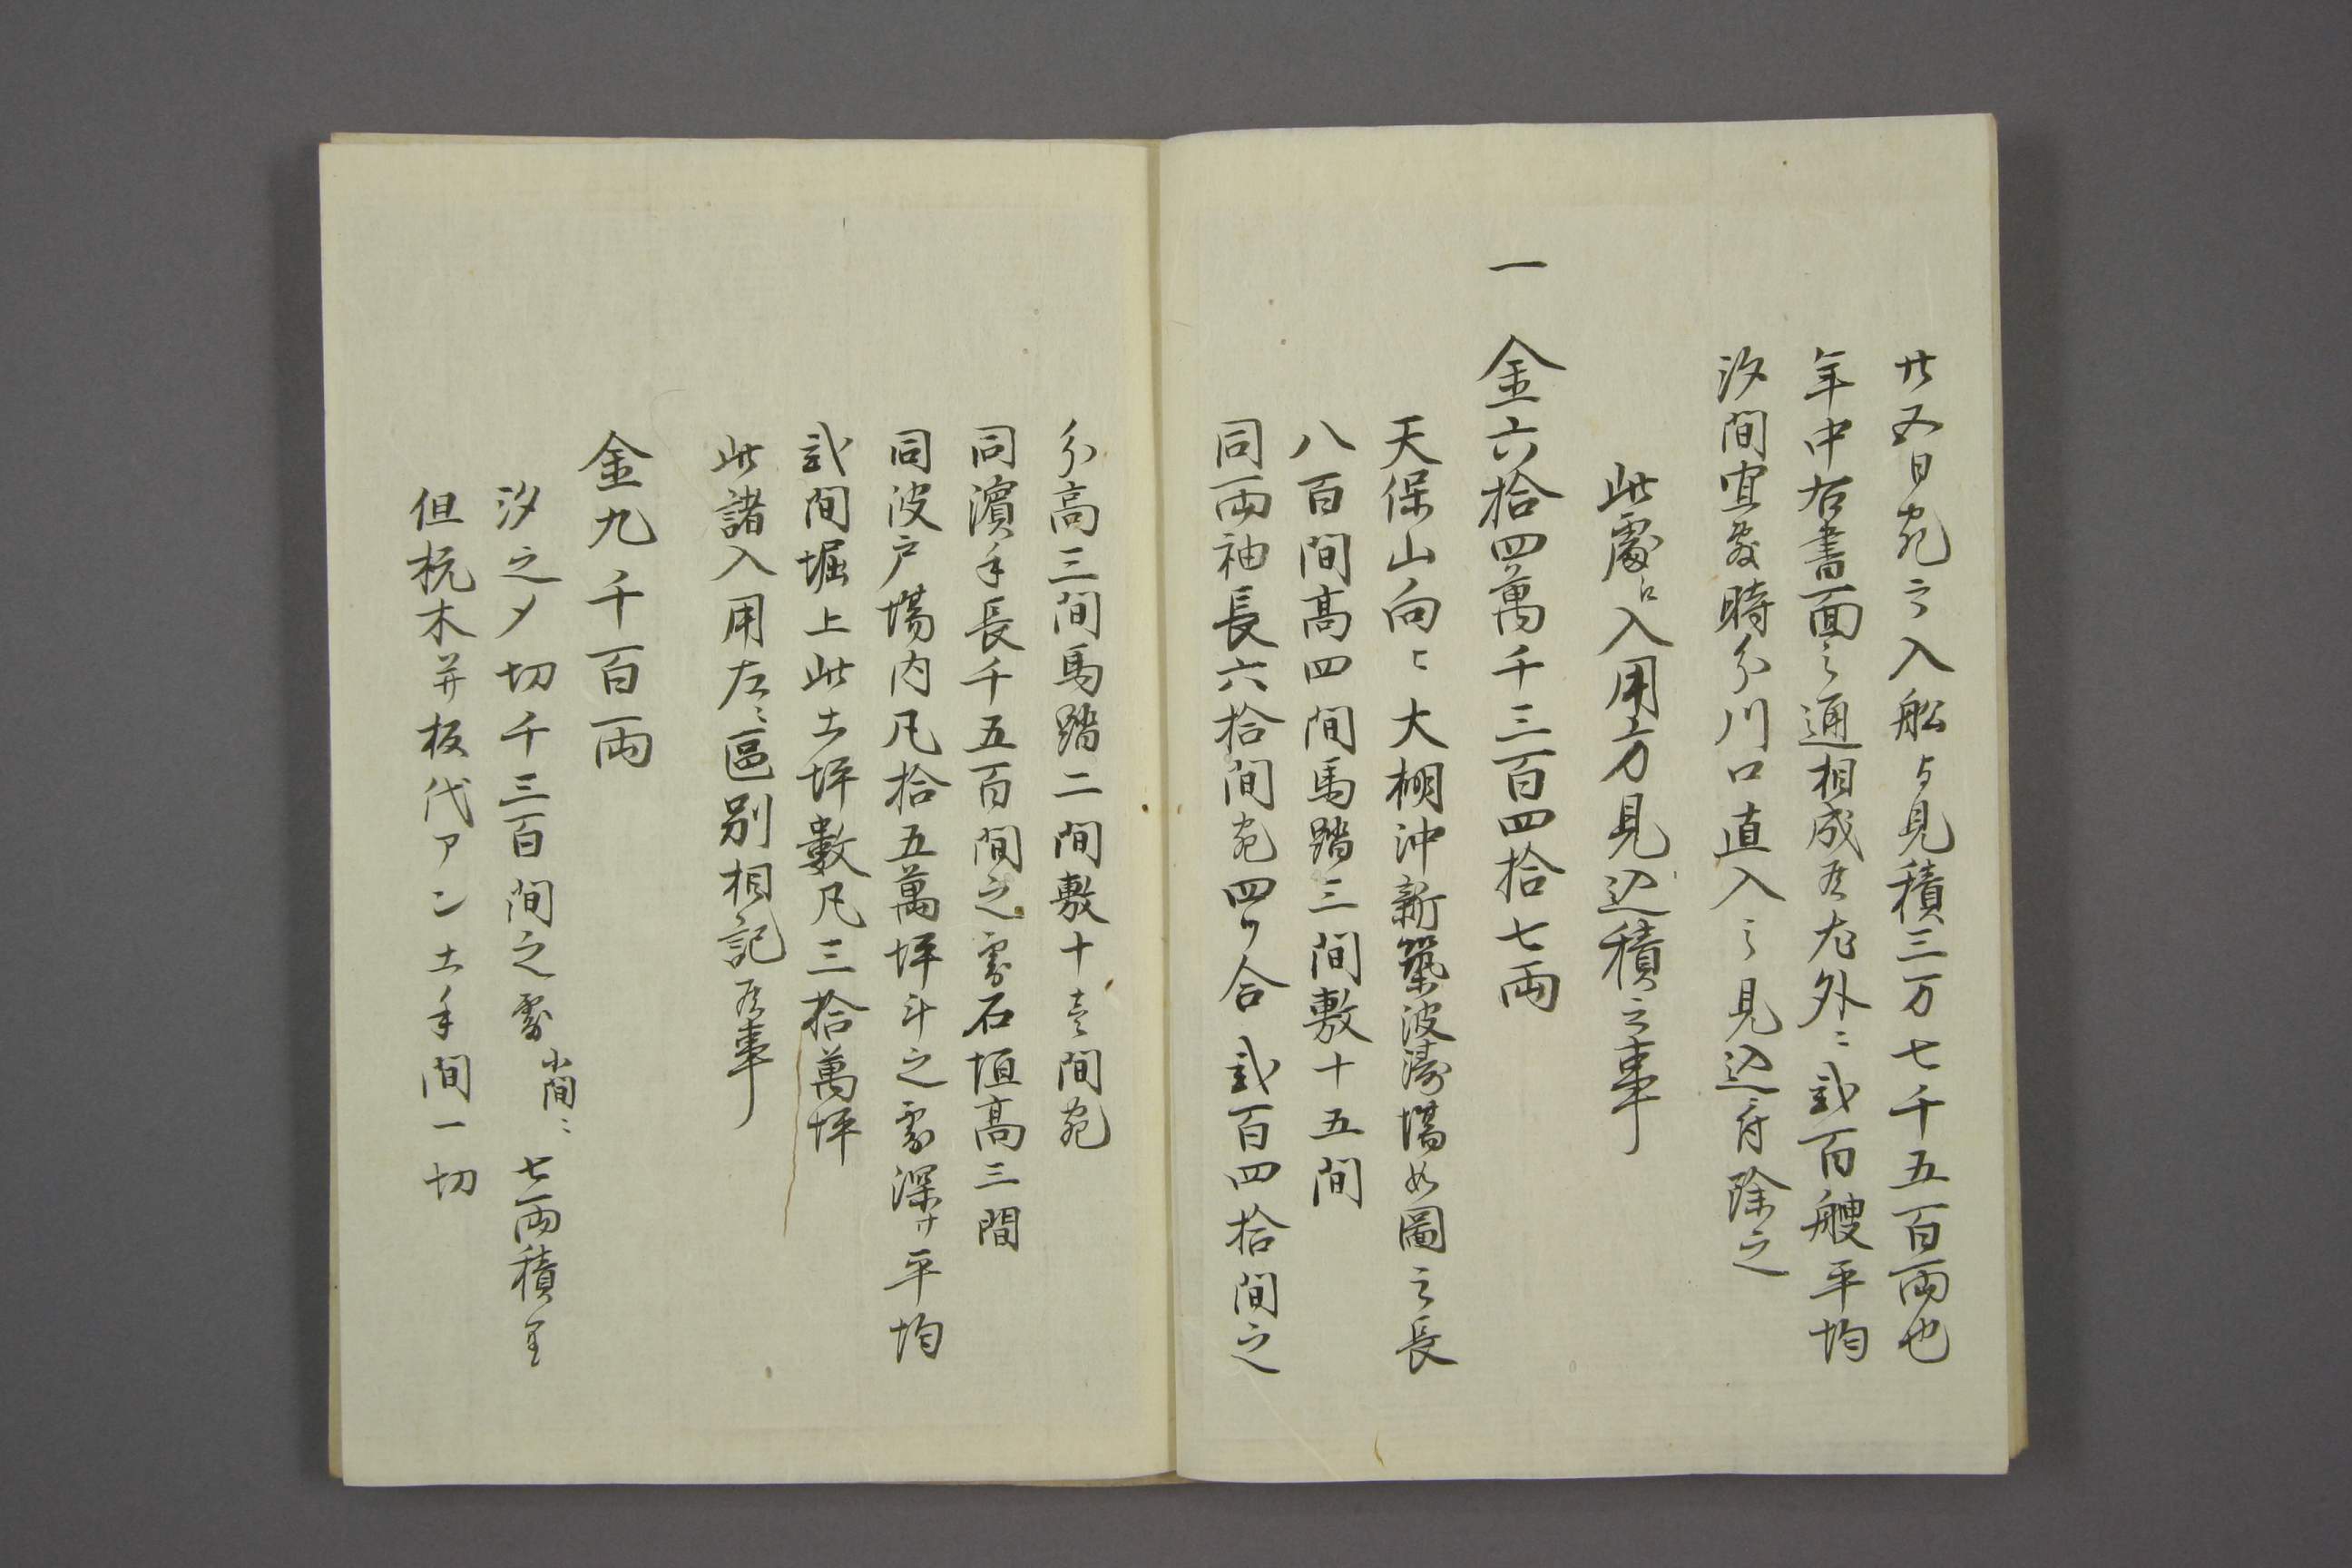 廿五日宛之入船与見積三万七千五百両也
年中右書面之通相成候尤外ニ弐百艘平均
汐間宜敷時分川口直入之見込ニ付除之
此處江入用之方見込積之事
一 金六拾四萬千三百四拾七両
天保山向ヒ大棚沖新築波濤場如圖之長
八百間高四間馬踏三間敷十五間
同両袖長六拾間宛四ケ合弐百四拾間之
分高三間馬踏二間敷十壱間宛
同濱手長千五百間之處石垣高三間
同波戸場内凡拾五萬坪斗之處深サ平均
弐間堀上此土坪數凡三拾萬坪
此諸入用左ニ區別相記候事
金九千百両
汐之〆切千三百間之處小間ニ七両積り
但杭木并板代アン土手間一切